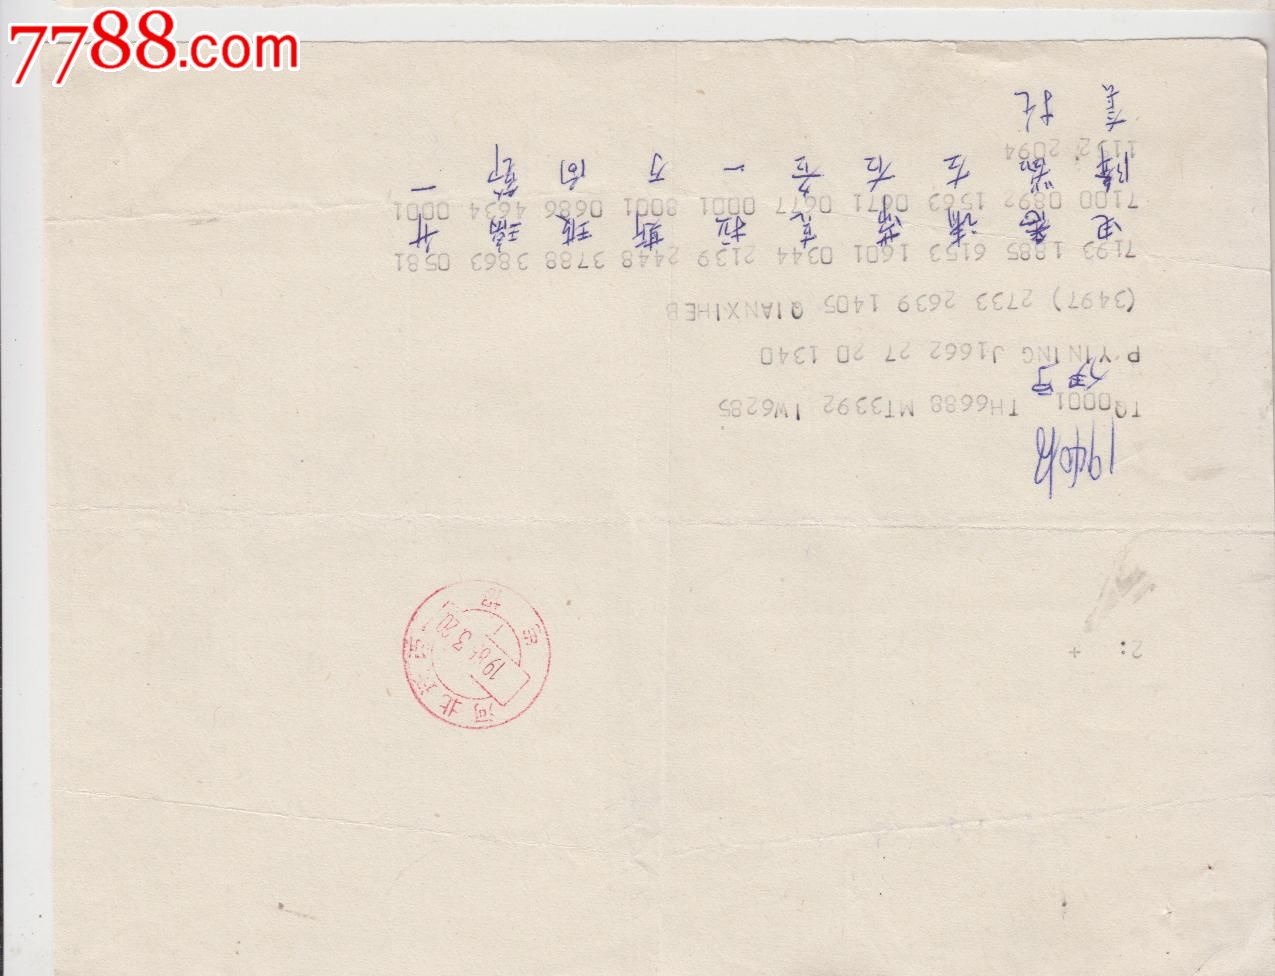 7788.com
1940收
TQ0001 TH6688 MT3392 IW6285
伊宁
P YINING J1662 27 20 1340
(3497) 2733 2639 1405 QIANXIHEB
7193 1885 6153 1601 0344 2139 2448 3788 3863 0581
电悉请帮克拉斯玻瑞升
7100 0892 1563 0671 0677 0001 8001 0686 4634 0001
降器左右各一万向节一
1132 2094
2: +
河北
1986.3.20